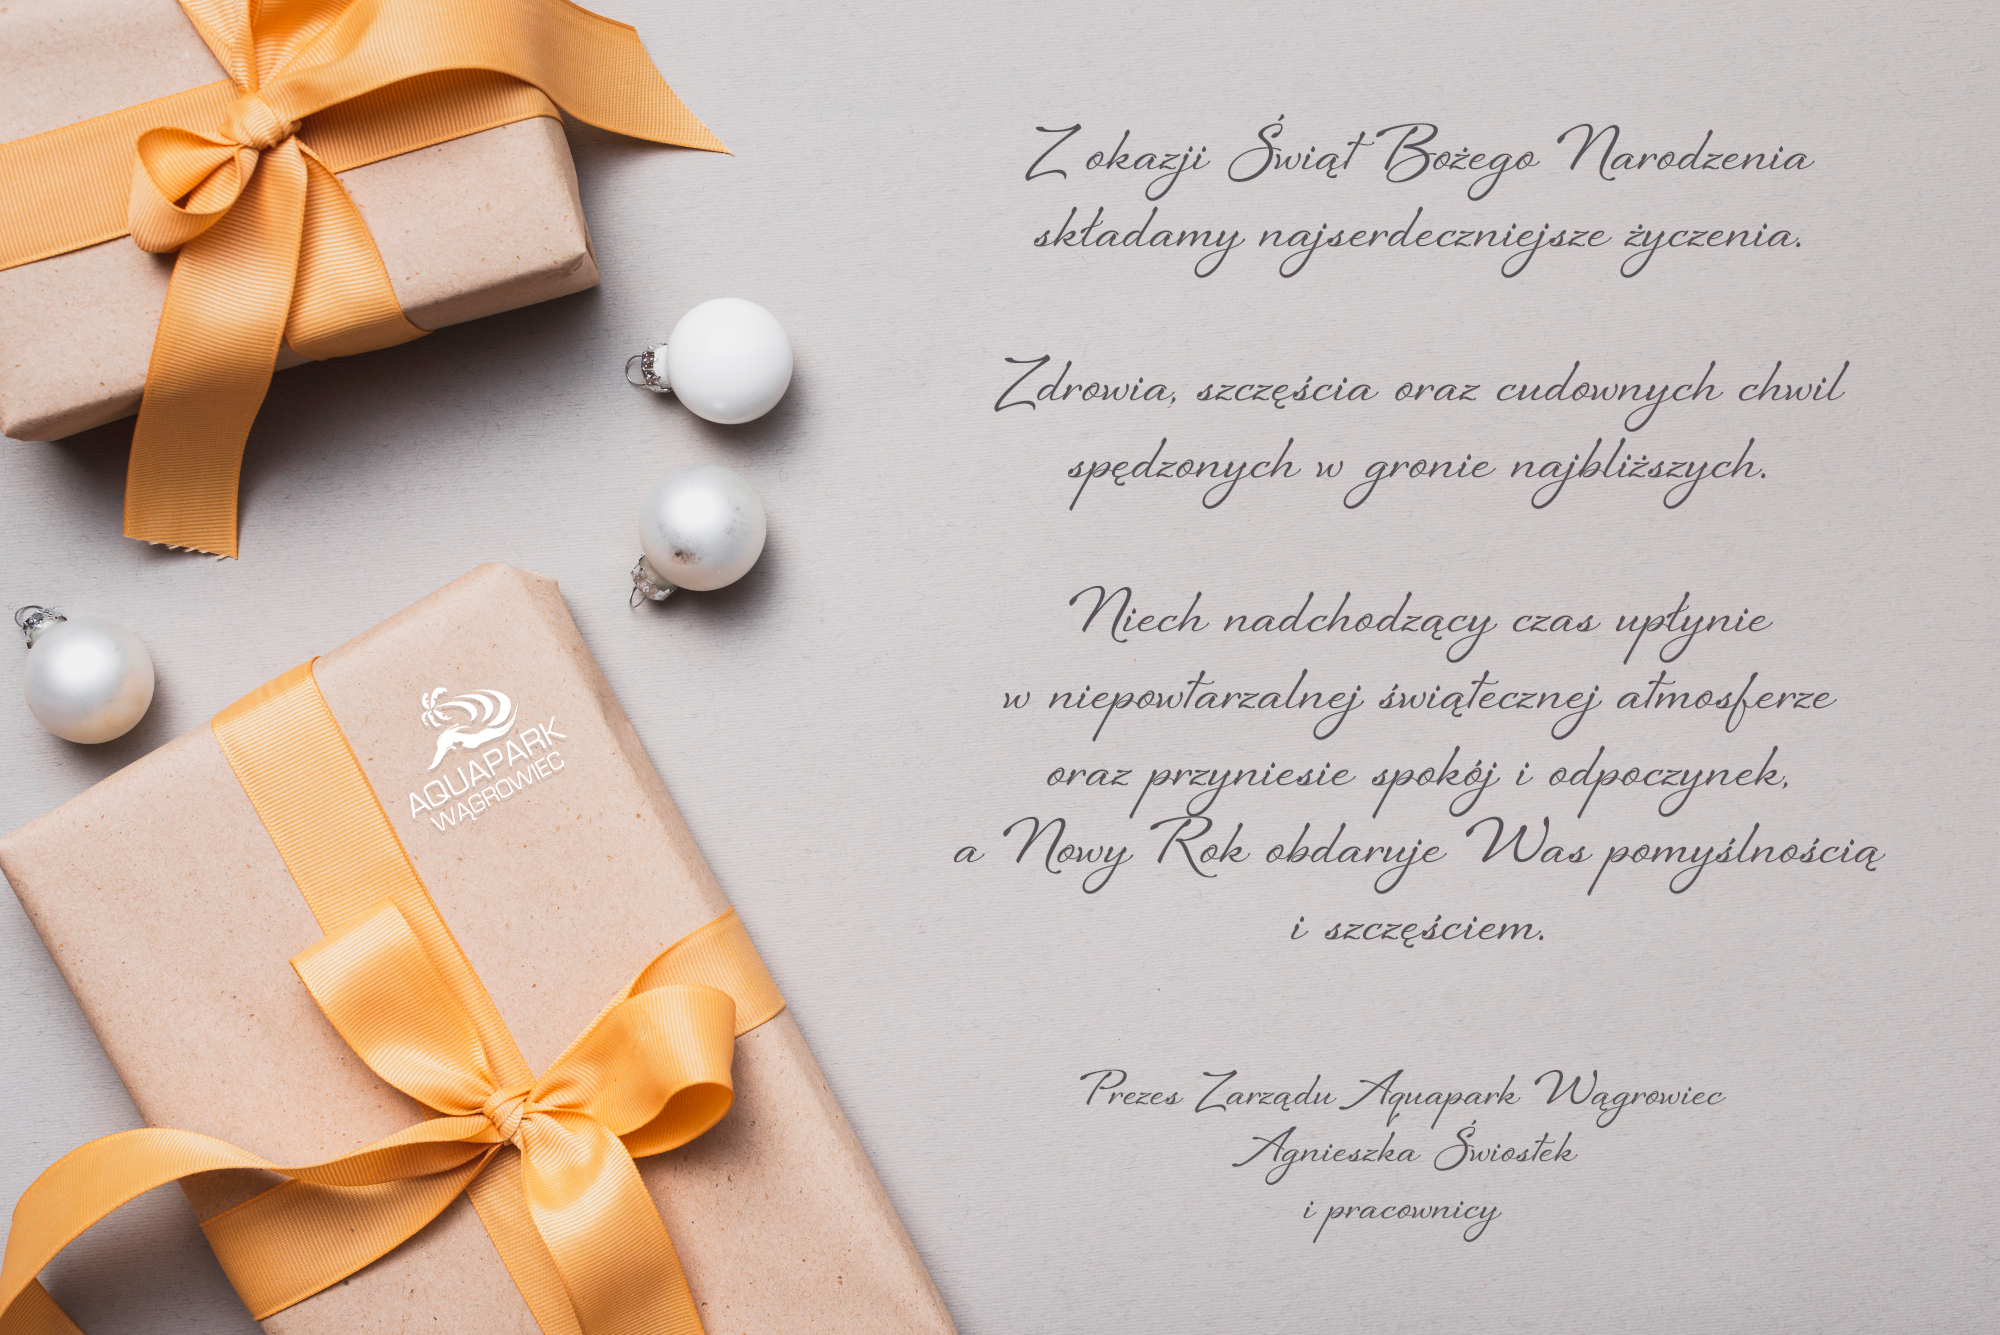 Z okazji Świąt Bożego Narodzenia
składamy najserdeczniejsze życzenia.
Zdrowia, szczęścia oraz cudownych chwil
spędzonych w gronie najbliższych.
Niech nadchodzący czas upłynie
w niepowtarzalnej świątecznej atmosferze
oraz przyniesie spokój i odpoczynek,
a Nowy Rok obdaruje Was pomyślnością
i szczęściem.
Prezes Zarządu Aquapark Wągrowiec
Agnieszka Świostek
i pracownicy
AQUAPARK
WĄGROWIEC